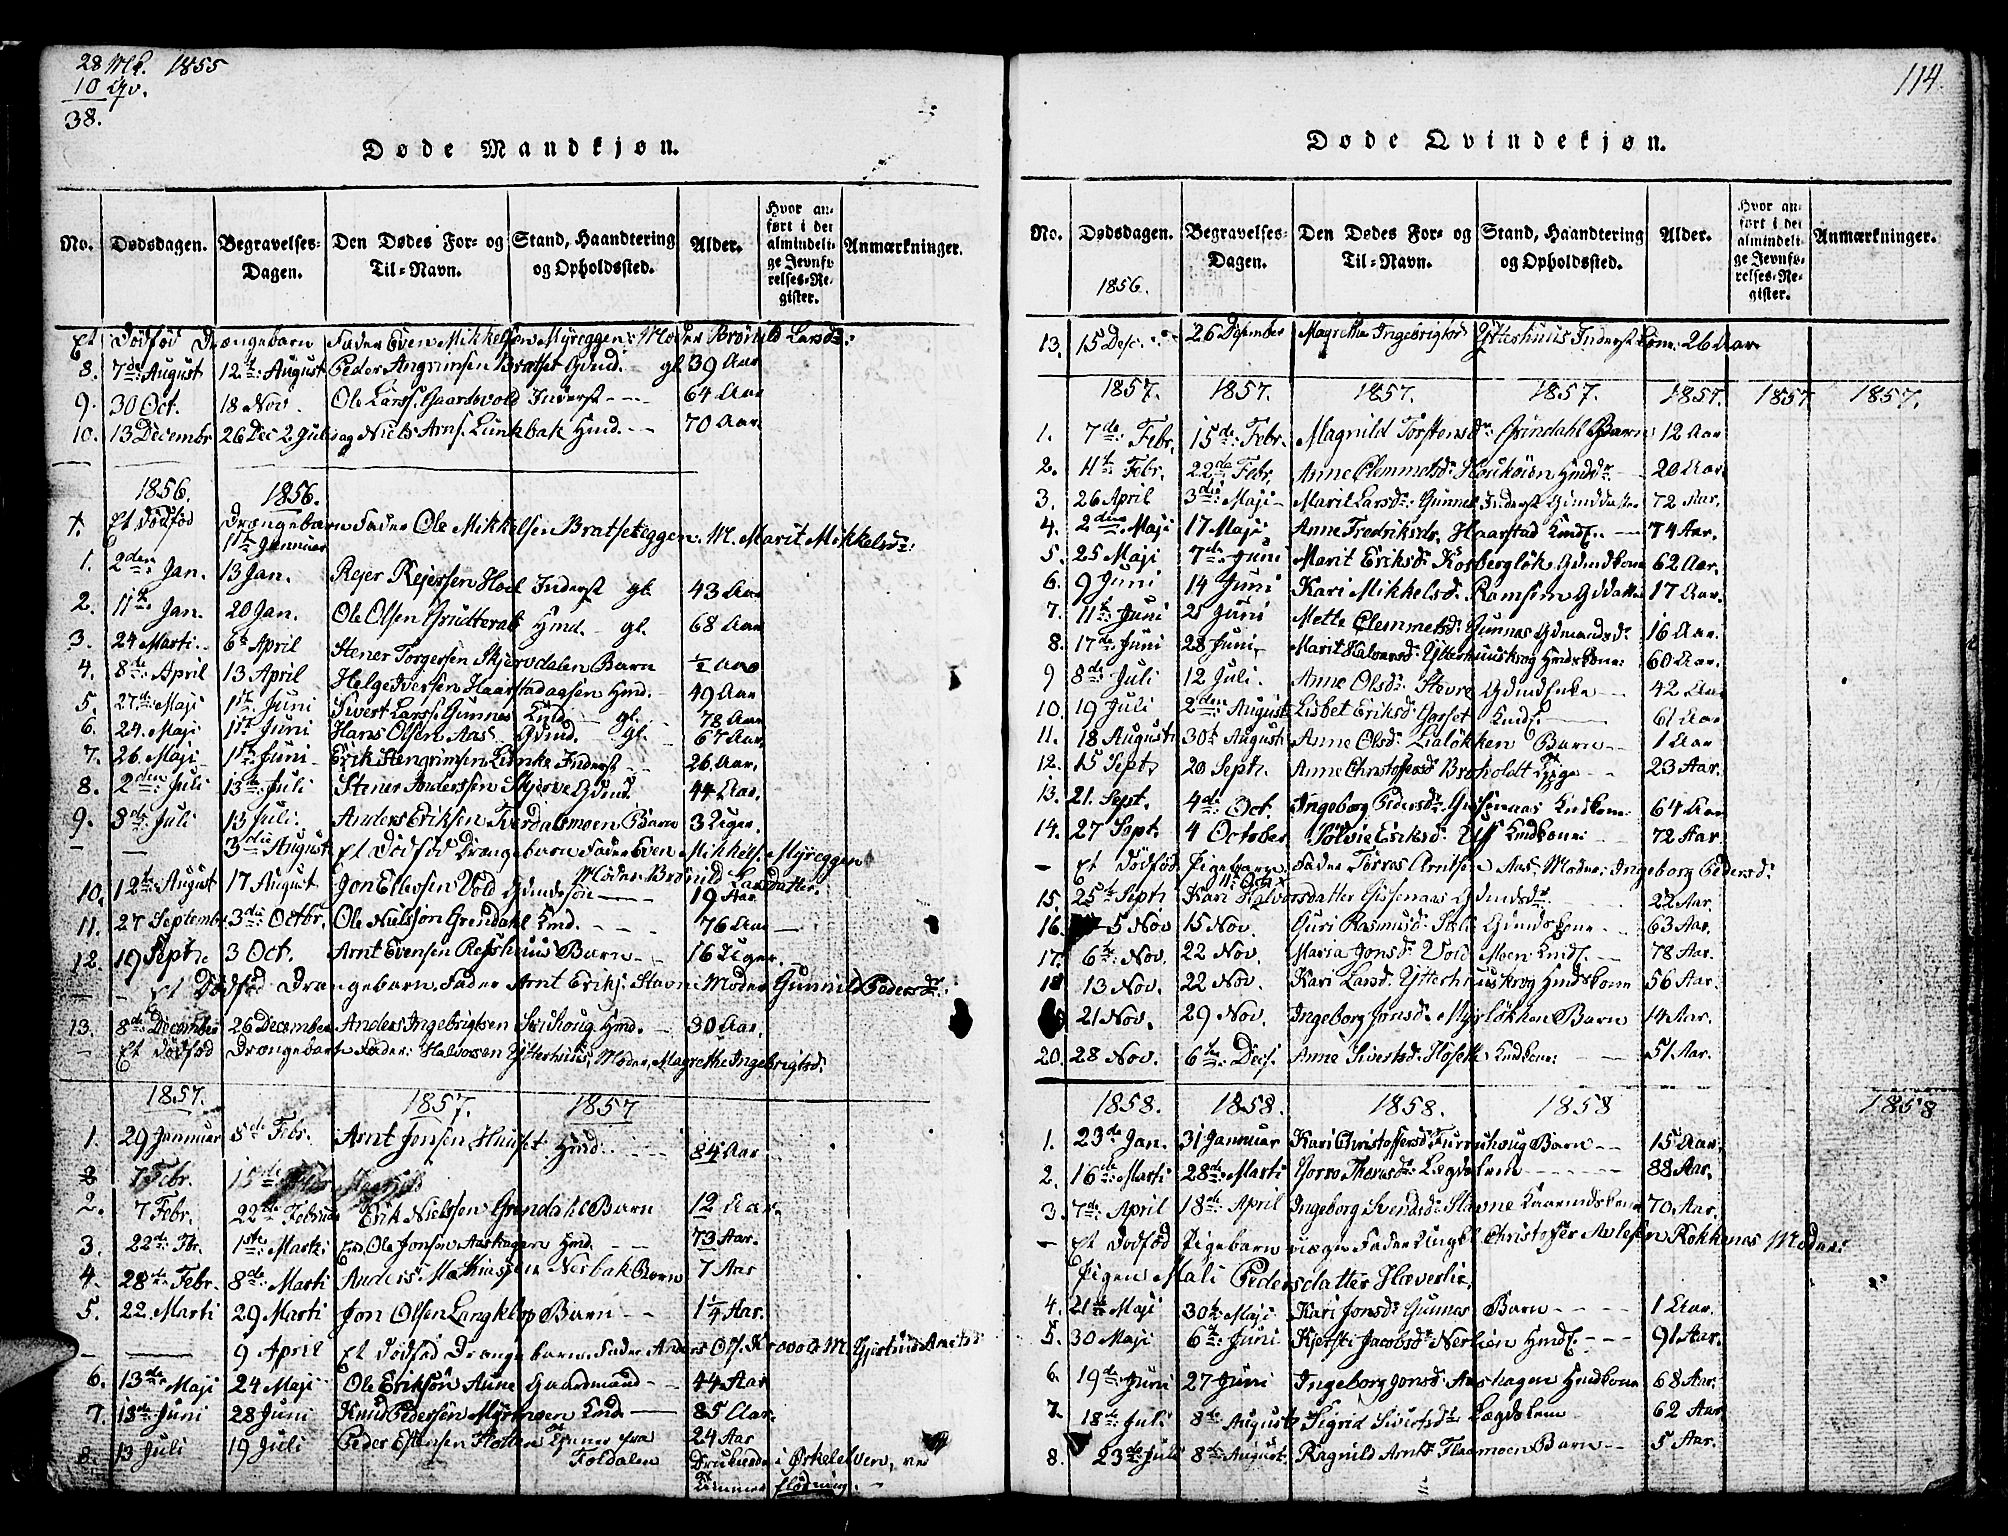 28 Mk. 1855
10 Qv.
38.
Døde Mandkjøn.
No. Dødsdagen. Begravelses-Dagen. Den Dødes For- og Til-Navn. Stand, Haandtering og Opholdssted. Alder. Hvor anført i det almindelige Jevnførelses-Register. Anmærkninger.
Et Dødfød Drængebarn Fader Even Mikkelsen Myreggen: Moder Brønild Larsd:
8. 7de August 12te August Peder Angrimsen Bratset Gdmd. gl. 39 Aar
9. 30 Oct. 18 Nov. Ole Larss. Gaardsvold Inderst 64 Aar
10. 13 Decembr 26 Dec 2. Juledag Niels Arns. Lunkbak Hmd. 70 Aar.
1856. 1856.
†. Et Dødfød Drængebarn Fader Ole Mikkelsen Bratseteggen. M. Marit Mikkelsd:
11te Januar
1. 2den Jan. 13 Jan. Rejer Rejersen Hoel Inderst gl. 43 Aar
2. 11te Jan. 20 Jan. Ole Olsen Hmd. gl. 68 Aar
3. 24 Marti 6te April Stener Torgersen Skjervdalen Barn ½ Aar
4. 8de April 13 April Helge Iversen Haarstadagsen Hmd. 49 Aar
5. 27de Maji 1ste Juni Sivert Larss. Gunnes Kmd. gl. 78 Aar
6. 24. Maji 1ste Juni Hans Olsen Aas Gdmd. gl. 67 Aar.
7. 26. Maji 1ste Juni Erik Stengrimsen Lunke Inderst 26. Aar.
8. 2den Juli 13de Juli Stener Anderssen Skjerve Gdmd. 44 Aar.
9. 3die Juli 13 Juli. Anders Eriksen Tverdalsmoen Barn 3 Uger.
3die August Et Dødfød Drængebarn Fader Even Mikkels. Myreggen
Moder Brønild Larsdatter.
10. 12te August 17 August Jon Ellevsen Vold Gdmdssøn 19 Aar.
11. 27 Septembr 3die Octbr. Ole Nielssøn Grendahl Kmd. 76 Aar
12. 19 Sept. 3 Oct. Arnt Evensen Refshuus Barn 16 Uger.
Et Dødfød Drængebarn, Fader Arnt Eriks. Stavn Moder Gunnild Pedersd:
13. 8de December 26 December Anders Ingebrigtsen Hmd. 30 Aar.
Et Dødfød Drængebarn Fader: Halvorsen Ytterhuus, Moder, Magrethe Ingebrigtsd.
1857. 1857. 1857
1. 29 Januar 8de Febr. Arnt Jonsen Huuset Hmd. 84 Aar
2 7 Febr. 15de Febr
2. 7 Febr. 22de Februar Erik Nielssen Grendahl Barn 12 Aar.
3. 22de Fbr. 1ste Marti Ole Jonsen Aashagen Hmd. 73 Aar.
4. 28de Febr. 8de Marti Anders Mathiassen Nerbak Barn 7 Aar
5. 22 Marti 29 Marti Jon Olsen Langklep Barn 1¼ Aar.
9 April Et Dødfød Drængebarn. Fader Anders Ols. Krovold M. Gjertrud Arntsd:
6. 13de Maji 24 Maji Ole Eriksøn Aune Gaardmand 44 Aar
7. 13de Juni 28 Juni Knud Pedersen Myrmoen Kmd. 85 Aar.
8. 13 Juli 19 Juli Peder Estensen Flotten Tjener fra Foldalen 24 Aar
Druknede i Ørkelelven, ved Tømmer flødning.
114.
Døde Qvindekjøn.
No. Dødsdagen. Begravelses-Dagen. Den Dødes For- og Til-Navn. Stand, Haandtering og Opholdssted. Alder. Hvor anført i det almindelige Jevnførelses-Register. Anmærkninger.
1856.
13. 15 Dese. 26 Desember Magrethe Ingebrigtsd Ytterhuus Inderst Kone: 26 Aar
1857. 1857. 1857. 1857. 1857. 1857 1857.
1. 7de Febr. 15de Febr. Magnild Torstensdr. Grindahl Barn 12 Aar
2. 11te Febr. 22de Febr. Anne Clemmetsd: Hmdsdr 20 Aar
3. 26 April 3die Maji Marit Larsd: Gunnes Inderst Gdmddatter 72 Aar.
4. 2den Maji 17 Maji Anne Fredriksdr. Haarstad Kmdf. 74 Aar.
5. 25 Maji 7de Juni Marit Eriksd: Kosbergløk Gdmdkone 62 Aar.
6. 9 Juni 14 Juni Kari Mikkelsd: Ramsem Gddatter 17 Aar.
7. 11te Juni 25 Juni Mette Clemmetsd: Gunnes Gdmandsd: 16 Aar.
8. 17de Juni 28 Juni Marit Halvorsd: Ytterhuuskrog Hmdskone: 60 Aar.
9 8de Juli 12 Juli. Anne Olsd: Stevre Gdmdenke 42 Aar
10. 19 Juli 2den August Lisbet Eriksd: Gorset Kmdf. 61 Aar
11. 18 August 30te August Anne Olsd: Lialøkken Barn 1 Aar
12. 15 Sept. 20 Sept. Anne Christoffersd: Broholdt Pige 23 Aar.
13. 21. Sept. 4de Oct. Ingeborg Pedersd: Gisenaas Kmdkone: 64 Aar
14. 27 Sept. 4 October Sølvie Eriksd: Uff Kmdkone: 72 Aar
Et Dødfød Pigebarn Fader Torres Arntsen Aas. Moder: Ingeborg Pedersd:
11 Octr
15. 25te Sept. Kari Halvorsdatter Gisenaas Gdmdsdr. 22 Aar.
16. 5 Nov 15 Nov. Guri Rasmusd: Gdmdskone 63 Aar.
17. 6te Nov. 22 Nov. Maria Jonsd: Vold Moen Kmdf. 78 Aar.
18 13 Nov. 22 Nov. Kari Larsd: Ytterhuuskrog Hmdskone 56 Aar.
21 Nov. 29 Nov. Ingeborg Jonsd: Myrløkken Barn 14 Aar.
20. 28 Nov. 6te Decs. Anne Sivertsd: Hoseth Kmdkone: 51 Aar.
1858. 1858. 1858. 1858 1858
1. 23de Jan. 31 Januar Kari Christoffersd: Furruhoug Barn 15 Aar.
2. 16de Marti 28de Marti Thoresd: Lægdelem 88 Aar.
3. 7de April 18de April Ingeborg Svendsd: Stavne Kaarmdskone 70 Aar.
Et Dødfød Pigebarn uægte Fader Ungkl Christofer Avlesen Rokkenes Moder:
Pigen: Mali Pedersdatter Hæverlie.
4. 21de Maji 30te Maji Kari Jonsd: Gunnes Barn 1 Aar.
5. 30 Maji 6te Juni Kjersti Jacobsd: Nerlien Hmdf. 91 Aar.
6. 19de Juni 27 Juni Ingeborg Jonsd: Aashagen Hmdkone 68 Aar.
7. 18de Juli 8de August Sigrid Sivertsd: Lægdelem 62 Aar.
8. 23de Juli 8de August: Ragnild Arntd. Flaamoen Barn 5 Aar.